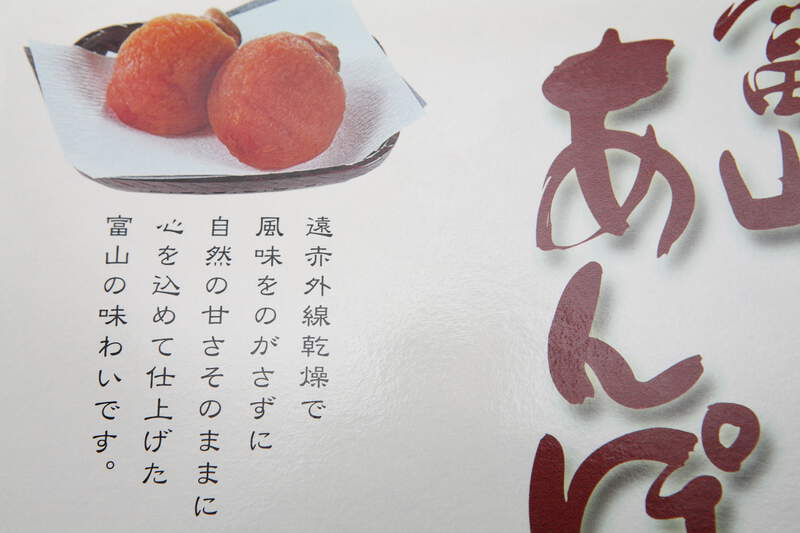 富山
あんぽ
遠赤外線乾燥で
風味をのがさずに
自然の甘さそのままに
心を込めて仕上げた
富山の味わいです。